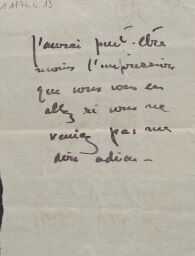 11174.4.13
j'aurai peut-être
moins l'impression
que vous vous en
allez si vous ne
venez pas me
dire adieu —